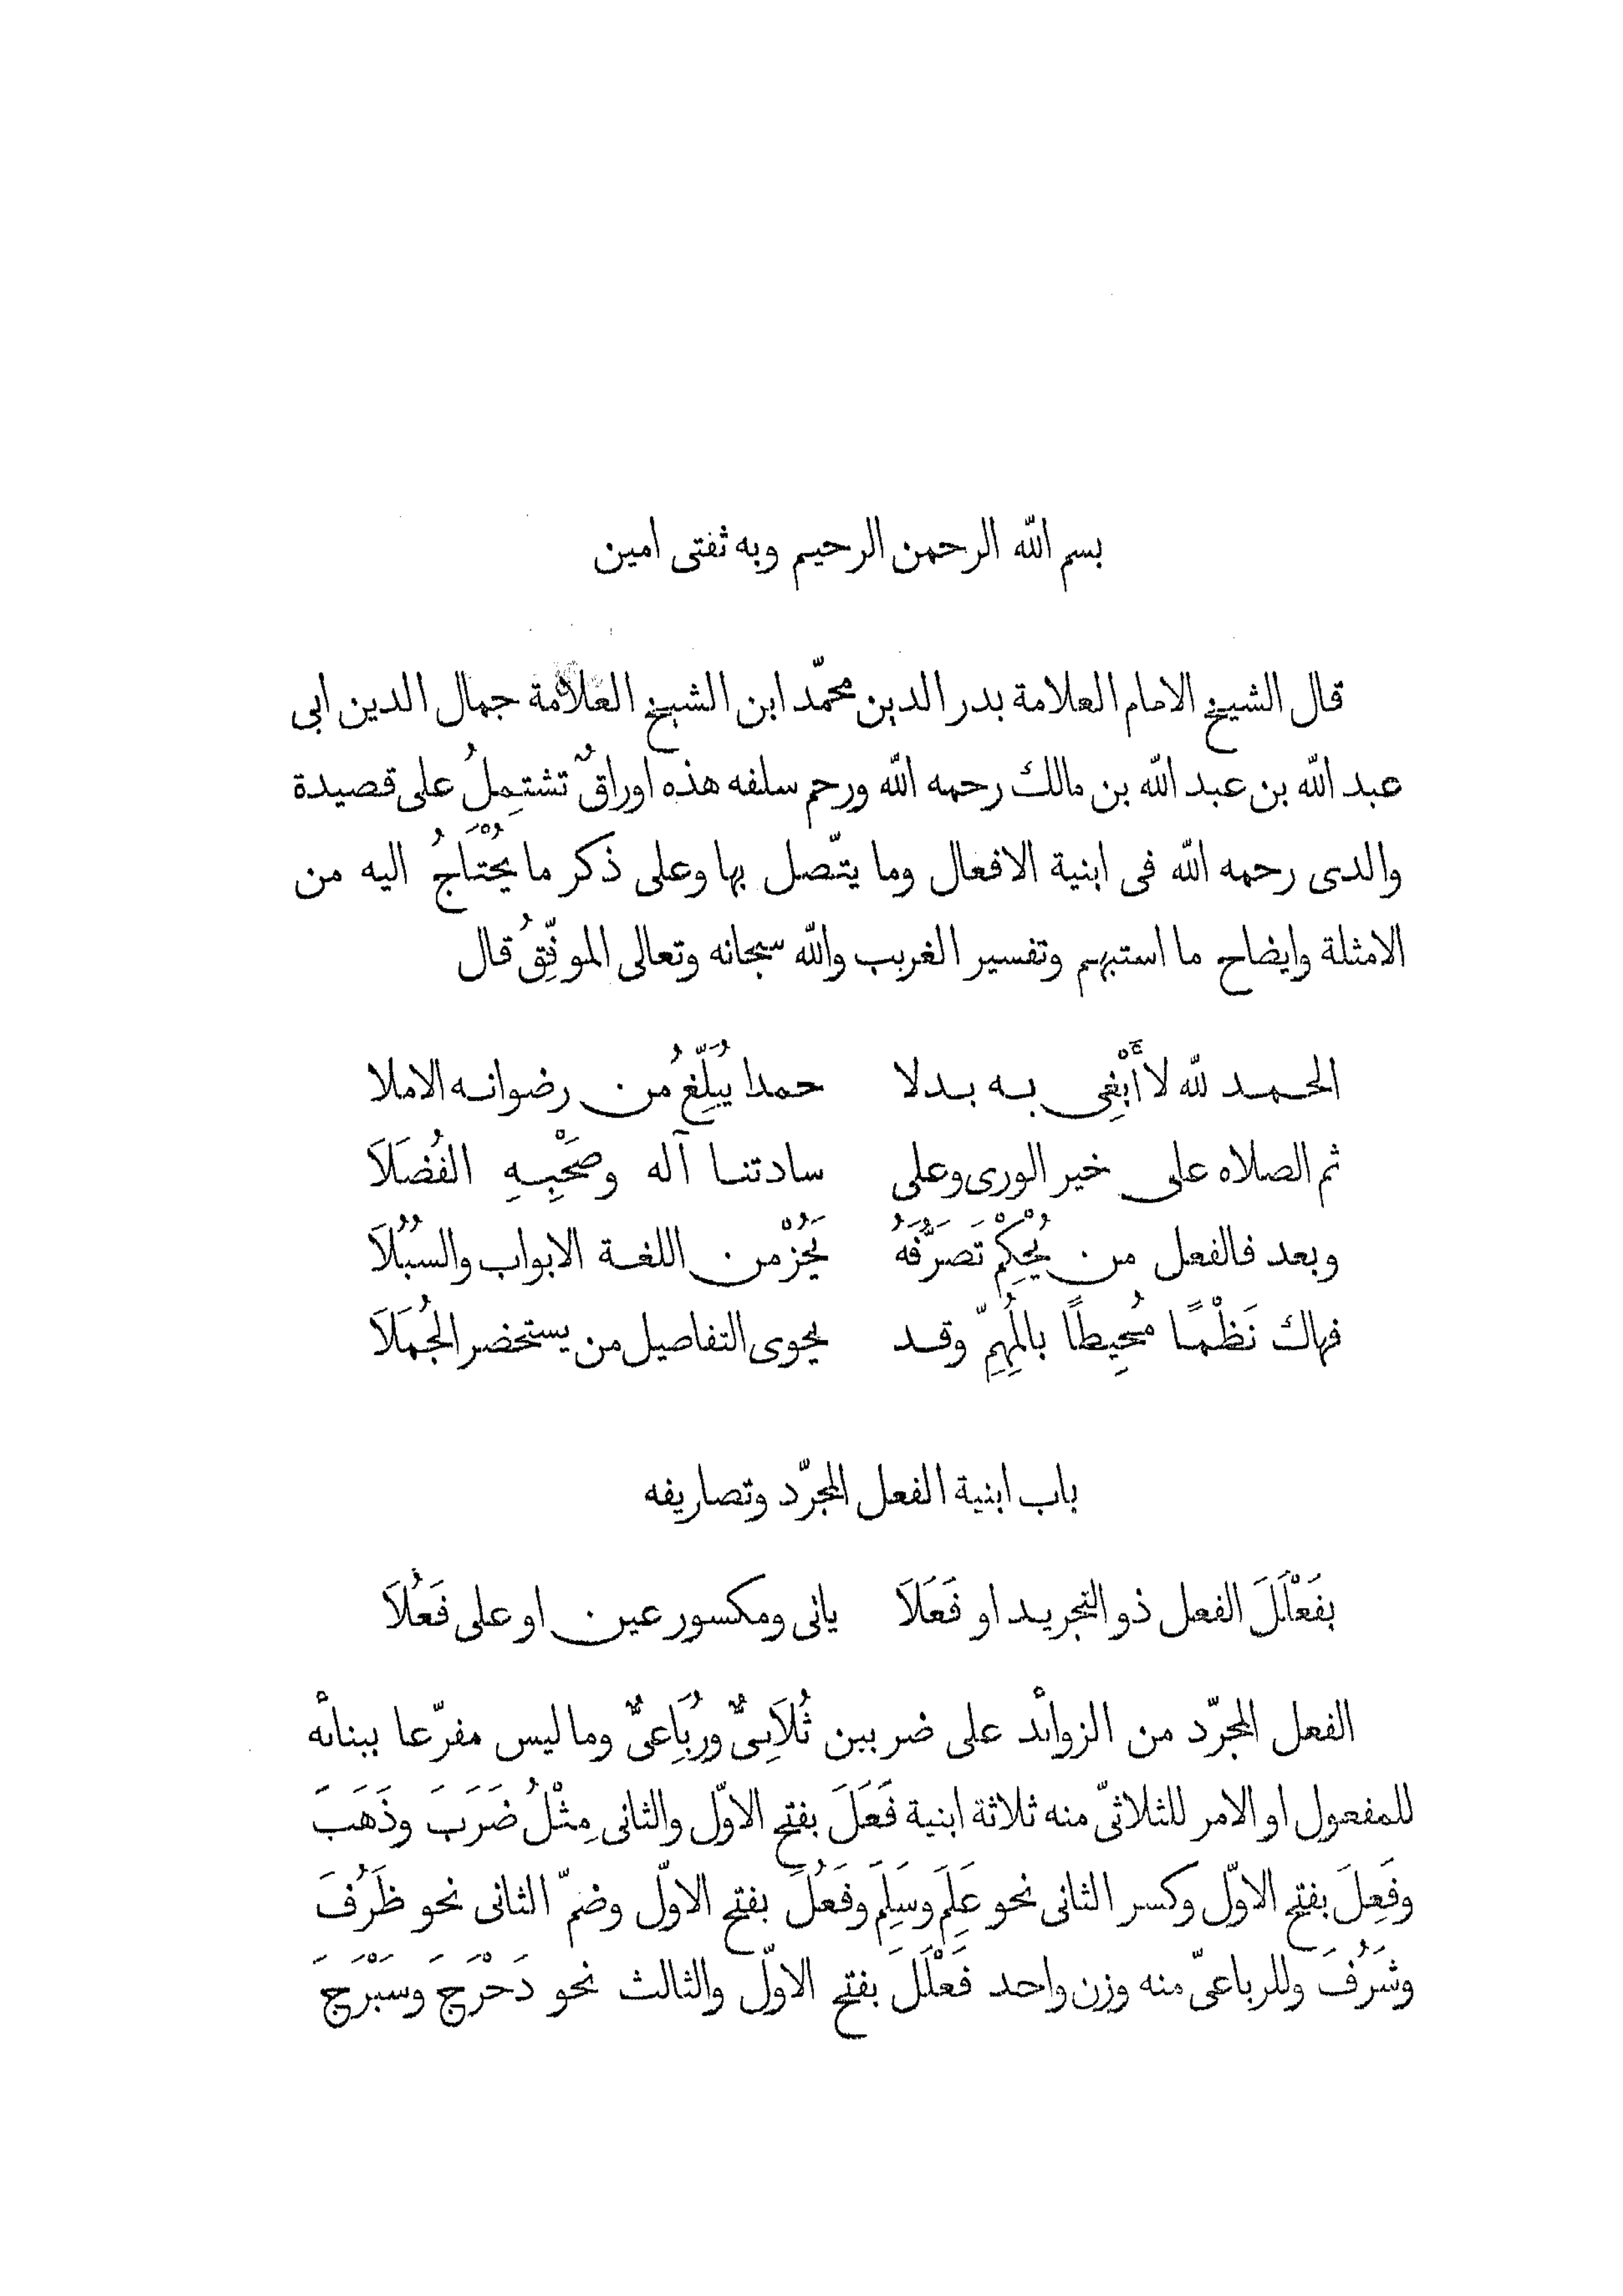 بسم الله الرحمن الرحيم وبه ثفتى امين
قال الشيخ الامام العلامة بدر الدين محمّد ابن الشيخ العلامة جمال الدين ابى
عبد الله بن عبد الله بن مالك رحمه الله ورحم سلفه هذه اوراقٌ تشتمِلُ على قصيدة
والدى رحمه الله فى ابنية الافعال وما يتّصل بها وعلى ذكر ما يُحْتَاجُ اليه من
الامثلة وايضاح ما استبهم وتفسير الغريب والله سبحانه وتعالى الموفّقُ قال
الحمد لله لا أَبْغِى به بدلا حمدا يُبَلِّغُ من رضوانه الاملا
ثم الصلاه على خير الورى وعلى سادتنا آله وصَحْبِهِ الفُضَلَا
وبعد فالفعل من يُحْكِمْ تَصَرُّفَهُ يَحُزْ من اللغة الابواب والسُبُلَا
فهاك نَظْمًا مُحِيطًا بالمُهِمِّ وقد يحوى التفاصيل من يستحضر الجُمَلَا
باب ابنية الفعل المجرّد وتصاريفه
بفَعْلَلَ الفعل ذو التجريد او فَعَلَا ياتى ومكسور عين او على فَعُلَا
الفعل المجرّد من الزوائد على ضربين ثُلَاثِىٌّ ورُبَاعِىٌّ وما ليس مفرّعا ببنائه
للمفعول او الامر للثلاثىّ منه ثلاثة ابنية فَعَلَ بفتح الاوّل والثانى مِثْلُ ضَرَبَ وذَهَبَ
وفَعِلَ بفتح الاوّل وكسر الثانى نحو عَلِمَ وسَلِمَ وفَعُلَ بفتح الاوّل وضمّ الثانى نحو ظَرُفَ
وشَرُفَ وللرباعىّ منه وزن واحد فَعْلَلَ بفتح الاوّل والثالث نحو دَحْرَجَ وسَبْرَجَ